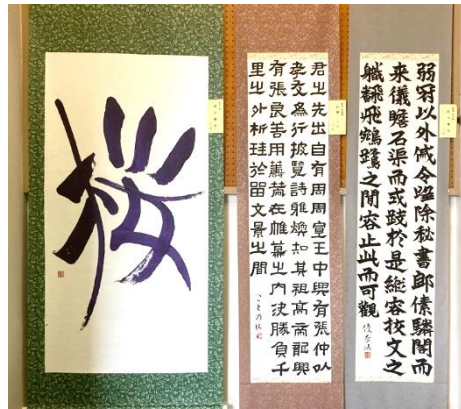 弱冠以外戚令望除秘書郎傃驎閣而
来儀瞻石渠而式踐於是縦容挍文之
軄翻飛鵷鷺之間容止此而可觀
君之先出自有周周宣王中興有張仲以
孝友為行披覽詩雅煥知其祖高帝龍興
有張良善用籌策在帷幕之内決勝負千
里之外析珪於留文景之間
桜